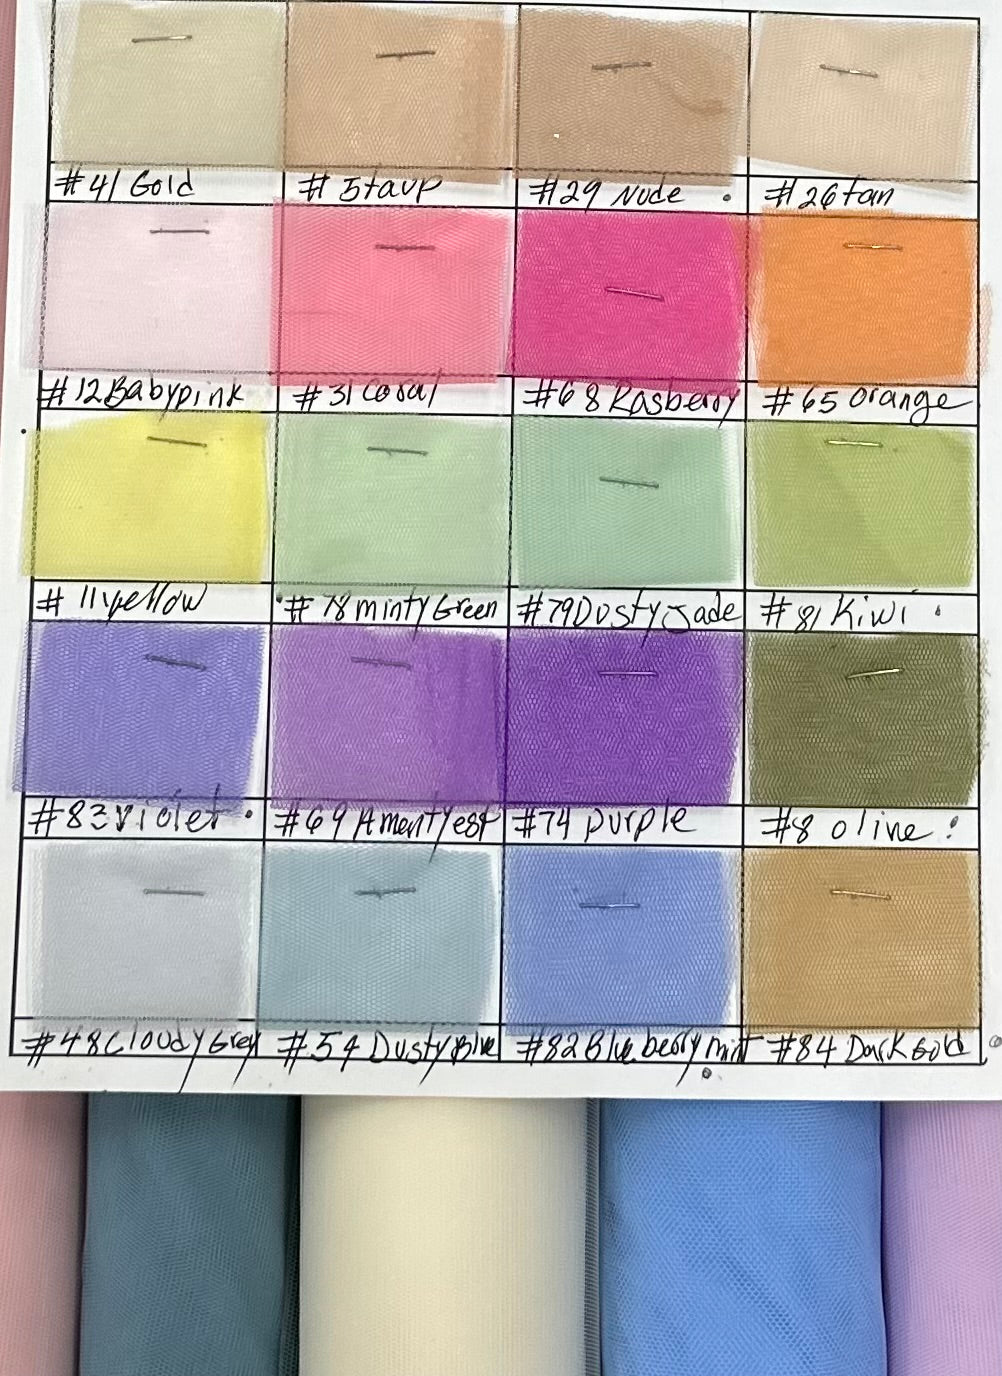 #41 Gold #5taup #29 Nude . #26tan
#12Babypink #31 Coral #68 Rasberry #65 orange
#11yellow #78mintyGreen #79DustyJade #81 Kiwi .
#83violet . #69 Amentyest #74 purple #8 olive :
#48CloudyGrey #54 DustyBlue #82Blueberry mint #84 DarkGold